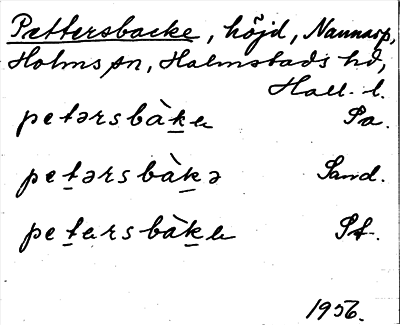 Pættersbacke, höjd, Nannarp,
Holms sn, Halmstads hd,
Hall. l.
petərsbàkɐ Pa.
petərsbàkə Sand.
petɐrsbàkɐ St.
1956.